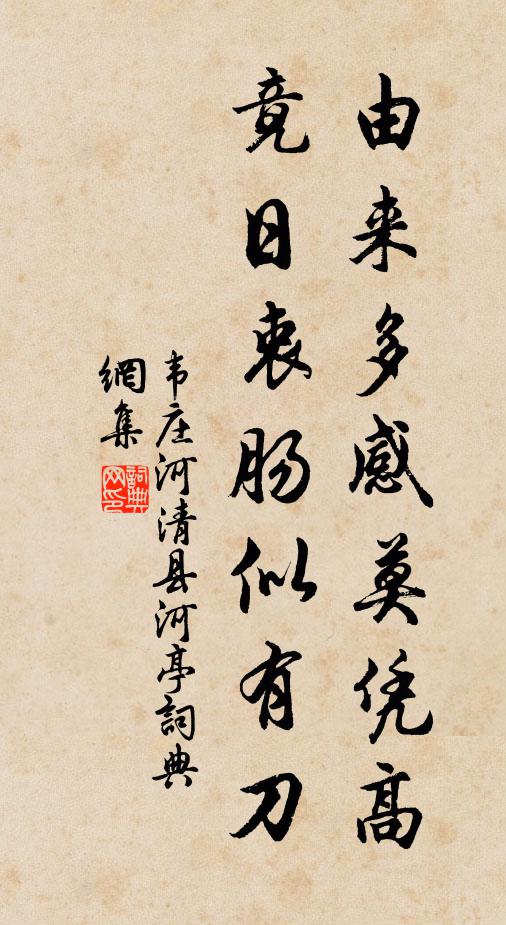 由来多感莫凭高
竟日衷肠似有刀
韦庄河清县河亭詞典
網集
詞典网印